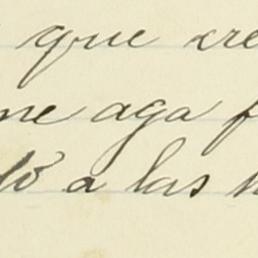 que cre
me aga f
do a las